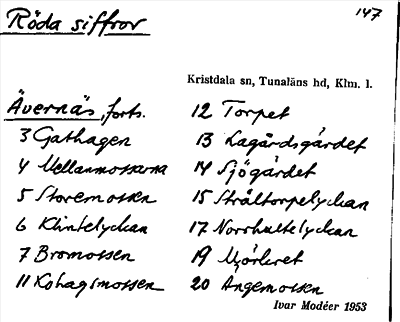 Röda siffror 147
Kristdala sn, Tunaläns hd, Klm. l.
Ävernäs, forts.
3 Gathagen
4 Mellanmossarna
5 Storemossen
6 Klintelyckan
7 Bromossen
11 Kohagsmossen
12 Torpet
13 Lagårdsgärdet
14 Sjögärdet
15 Stråltorpelyckan
17 Norrhultelyckan
19
20 Angemossen
Ivar Modéer 1953